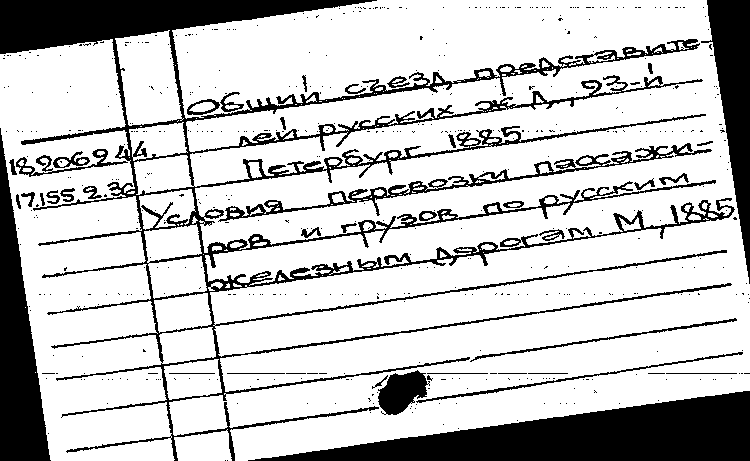 Общий съезд представите-
лей русских ж. д., 93-й.
18.206.2.44. Петербург 1885
17.155.2.36.
Условия перевозки пассажи-
ров и грузов по русским
железным дорогам. М., 1885